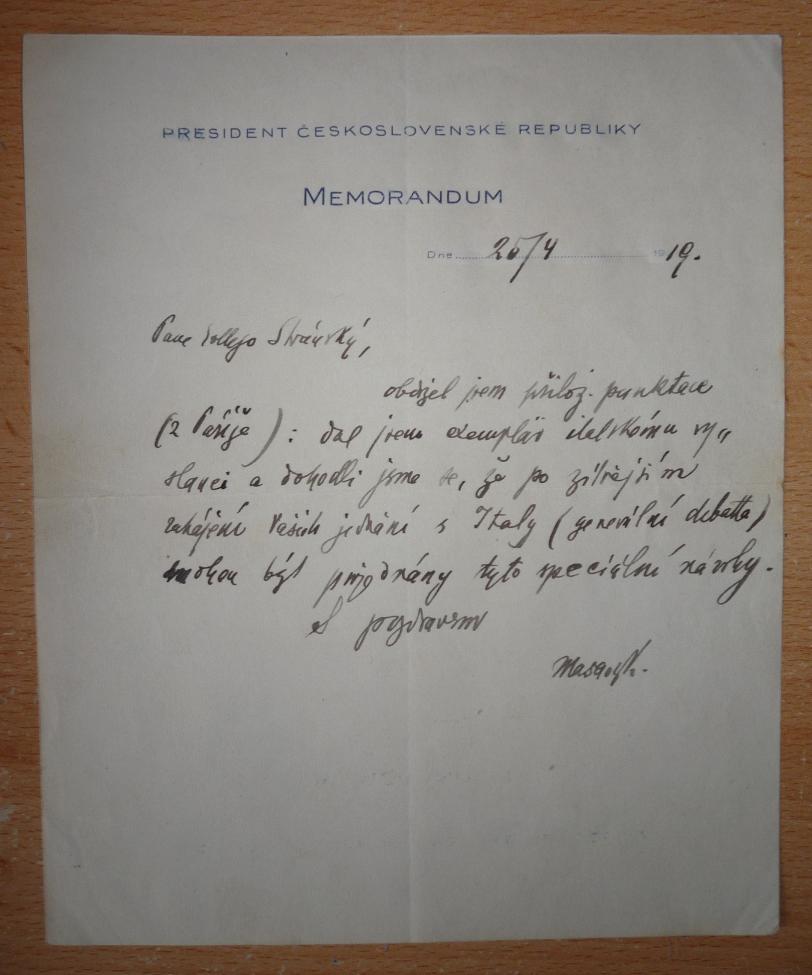 PRESIDENT ČESKOSLOVENSKÉ REPUBLIKY
MEMORANDUM
Dne 25/4 1919.
Pane kollego Stránský,
obdržel jsem přilož. punktace
(z Paříže): dal jsem exemplář italskému vy„
slanci a dohodli jsme se, že po zítřejším
zahájení Vašich jednání s Italy (generální debatta)
mohou být projednány tyto speciální návrhy.
S pozdravem
Masaryk.